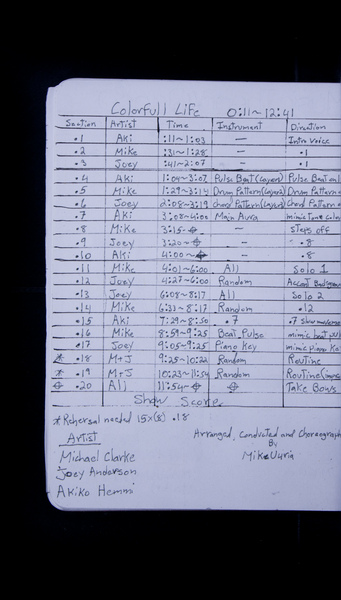 Colorfull Life 0:11~12:41
Section Artist Time Instrument Diration
.1 Aki :11~1:03 — Intro Voice
.2 Mike :31~1:28 — .1
.3 Joey :41~2:07 — .1
.4 Aki 1:04~3:07 Pulse Beat(Layers) Pulse Beat
.5 Mike 1:29~3:14 Drum Pattern(Layers) Drum Pattern
.6 Joey 2:08~3:19 Chord Pattern(Layers) Chord Pattern
.7 Aki 3:08~4:00 Main Aura mimic Tone
.8 Mike 3:15~⌖ — Steps off
.9 Joey 3:20~⌖ — .8
.10 Aki 4:00~⌖ — .8
.11 Mike 4:01~6:00 All Solo 1
.12 Joey 4:27~6:00 Random
.13 Joey 6:08~8:17 All Solo 2
.14 Mike 6:33~8:17 Random .12
.15 Aki 7:29~8:50 .7 .7
.16 Mike 8:59~9:25 Beat Pulse mimic beat
.17 Joey 9:05~9:25 Piano Key mimic Piano
* .18 M+J 9:25~10:22 Random Routine
* .19 M+J 10:23~11:54 Random Routine
⌖ .20 All 11:54~⌖ ⌖ Take Bows
Show Scorp.
*Rehersal needed 15x(s) .18
Artist
Arranged, Conducted and Choreograph
By
Michael Clarke
Mike
Joey Anderson
Akiko Hemmi